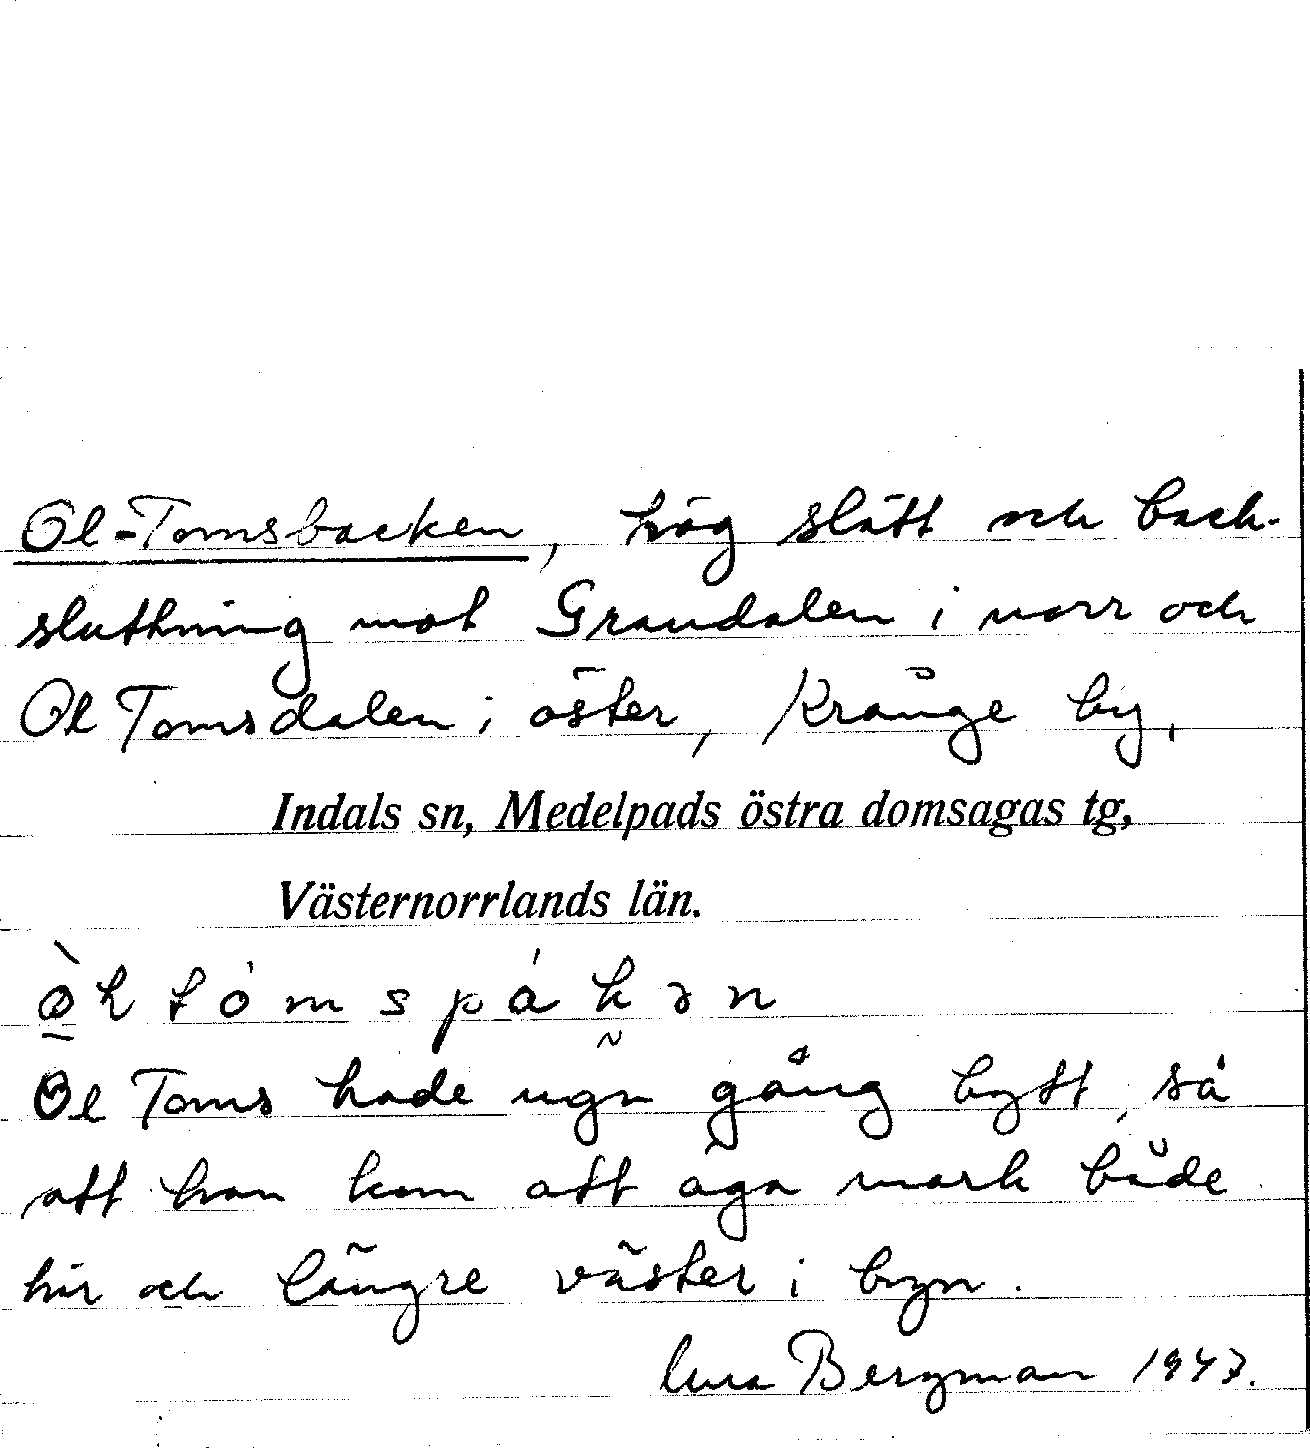 Ol-Tomsbacken, hög slätt och back-
sluttning mot Grandalen i norr och
Ol Tomsdalen i öster, Krånge by,
Indals sn, Medelpads östra domsagas tg,
Västernorrlands län.
Ol Toms hade ugn gång bytt, så
att han kom att äga mark både
här och längre väster i byn.
Bergman 1947.